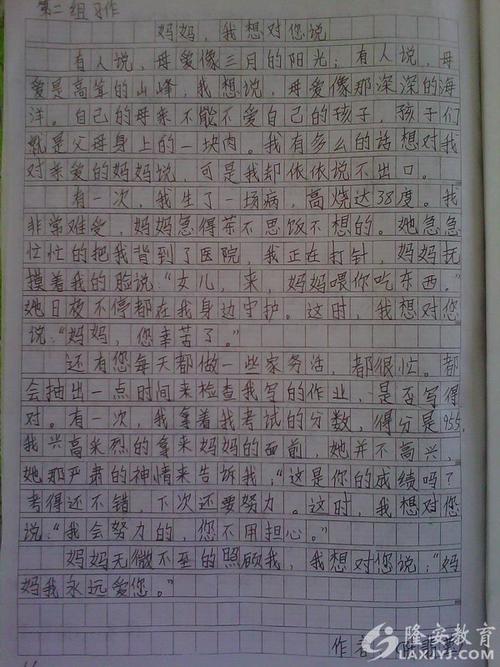 第二组习作
妈妈,我想对您说
有人说,母爱像三月的阳光;有人说,母
爱是高耸的山峰,我想说,母爱像那深深的海
洋。自己的母亲不能不爱自己的孩子,孩子们
就是父母身上的一块肉。我有多么的话想对我
对亲爱的妈妈说,可是我却依依说不出口。
有一次,我生了一场病,高烧达38度。我
非常难受,妈妈急得茶不思饭不想的。她急急
忙忙的把我背到了医院,我正在打针,妈妈抚
摸着我的脸说:“女儿,来,妈妈喂你吃东西。”
她日夜不停都在我身边守护。这时,我想对您
说:“妈妈,您幸苦了。”
还有您每天都做一些家务活,都很忙。都
会抽出一点时间来检查我写的作业,是否写得
对。有一次,我拿着我考试的分数,得分是95.5,
我兴高采烈的拿来妈妈的面前,她并不高兴,
她那严肃的神情来告诉我:“这是你的成绩吗?
考得还不错,下次还要努力。这时,我想对您
说:“我会努力的,您不用担心。”
妈妈无微不至的照顾我,我想对您说:“妈
妈我永远爱您。”
作者
隆安教育
LAXJYJ.COM